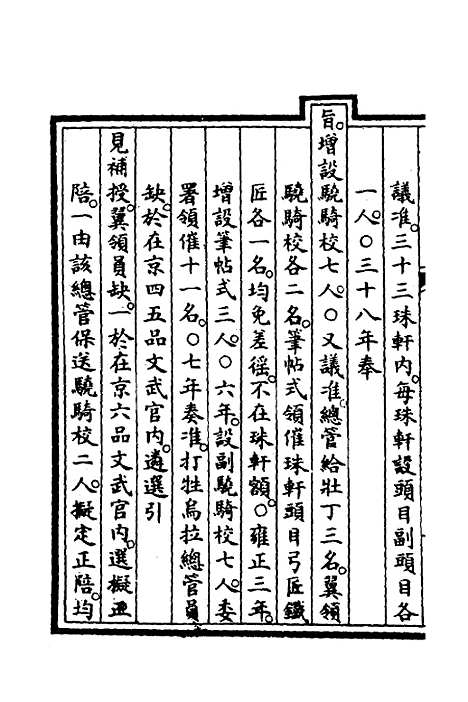 議准。三十三珠軒内。每珠軒設頭目副頭目各
一人。○三十八年奉
旨。增設驍騎校七人。○又議准。總管給壯丁三名。翼領
驍騎校各二名。筆帖式領催珠軒頭目弓匠鐵
匠各一名。均免差徭。不在珠軒額。○雍正三年。
增設筆帖式三人。○六年。設副驍騎校七人。委
署領催十一名。○七年奏准。打牲烏拉總管員
缺。於在京四五品文武官内。遴選引
見補授。翼領員缺。一於在京六品文武官内。選擬正
陪。一由該總管保送驍騎校二人。擬定正陪。均